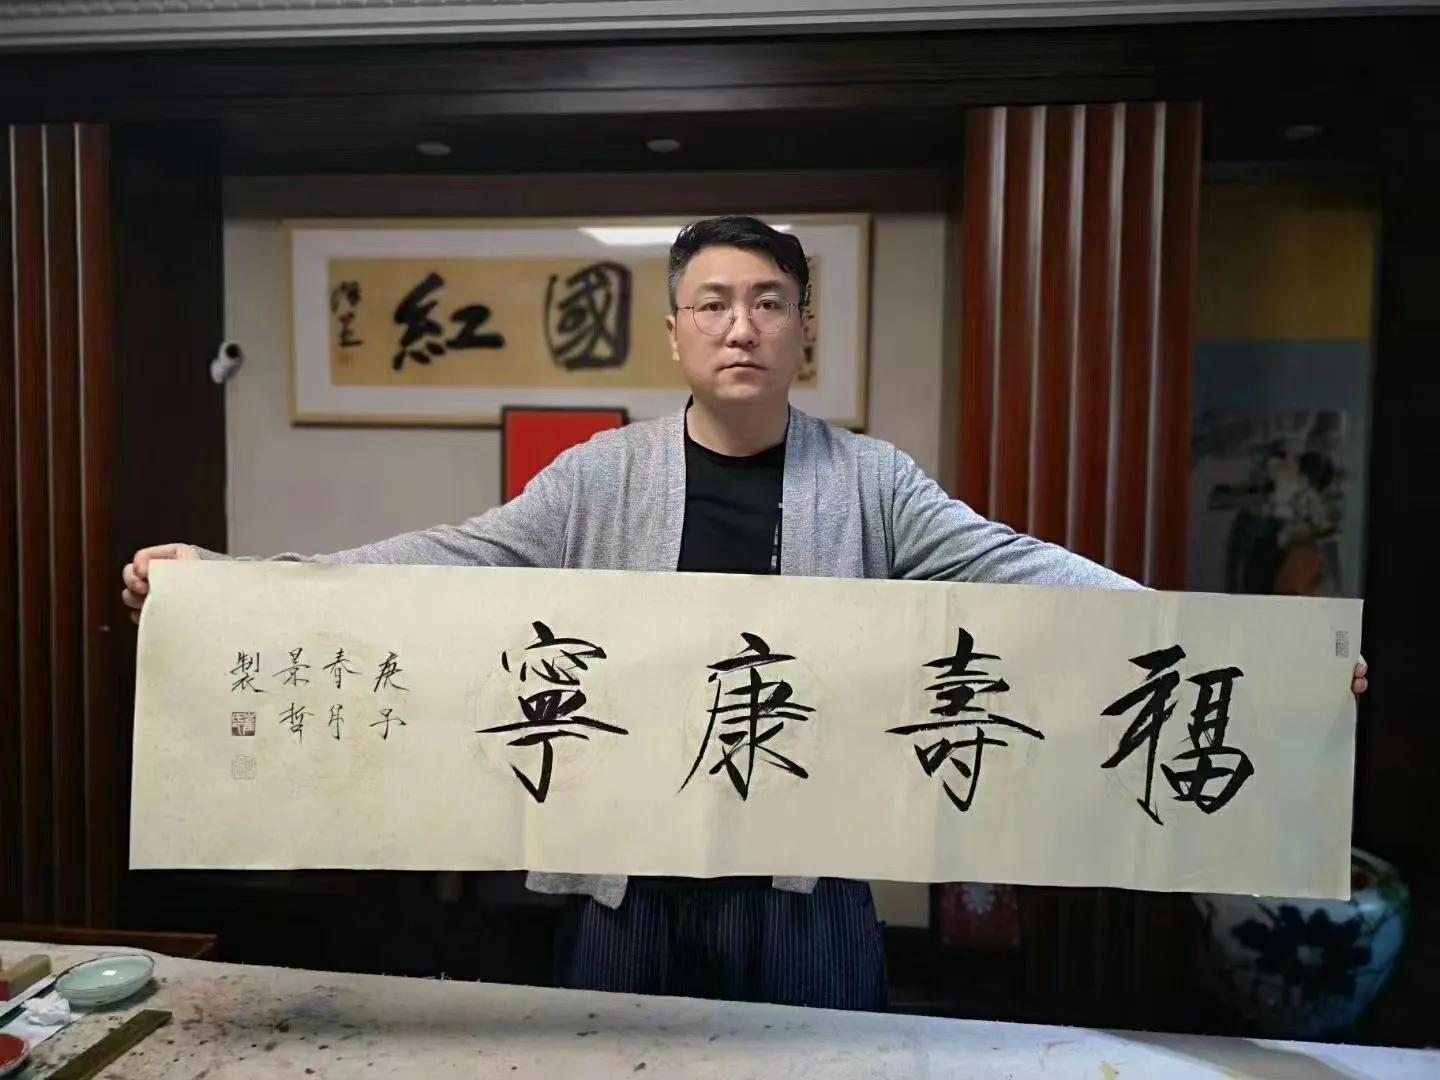 福壽康寧
庚子
春月
景哲
製
國紅